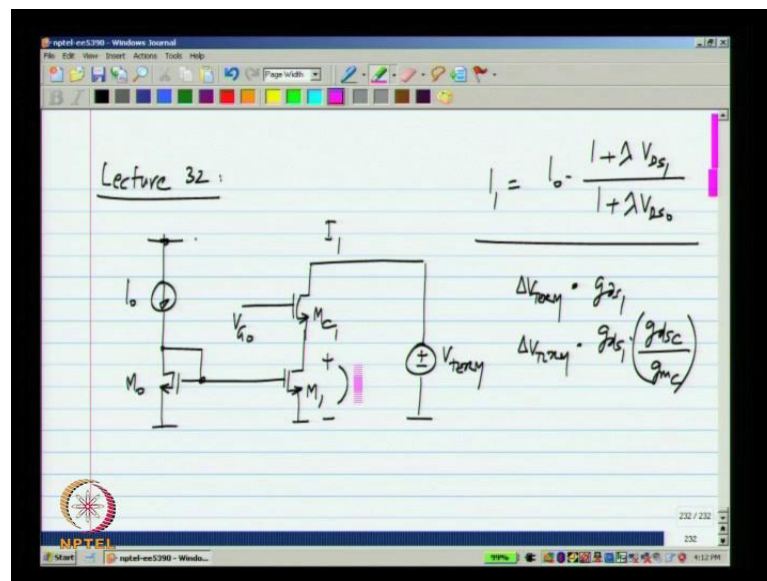 nptel-ee5390 - Windows Journal
File Edit View Insert Actions Tools Help
Page Width
B I
Lecture 32 :
I₁ = I₀ · (1 + λ V_DS₁) / (1 + λ V_DS₀)
I₁
I₀
V_G₀
M_C₁
M₀
M₁
+
-
V_TERM
ΔV_TERM · g_ds₁
ΔV_TERM · g_ds₁ · (g_dsc / g_mc)
232 / 232
232
NPTEL
Start
nptel-ee5390 - Windo...
99%
4:12 PM